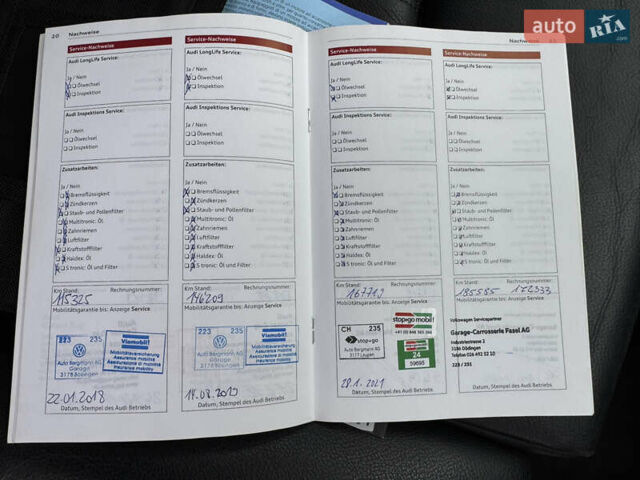 auto RIA.com
20 Nachweise
Service-Nachweise
Audi LongLife Service:
Ja / Nein
Ölwechsel
Inspektion
Audi Inspektions Service:
Ja / Nein
Ölwechsel
Inspektion
Zusatzarbeiten:
Ja / Nein
Bremsflüssigkeit
Zündkerzen
Staub- und Pollenfilter
Multitronic: Öl
Zahnriemen
Luftfilter
Kraftstofffilter
Haldex: Öl
S tronic: Öl und Filter
Km Stand: Rechnungsnummer:
115325
Mobilitätsgarantie bis: Anzeige Service
223 235
Auto Bergmann AG
Garage
3178 Bösingen
Viamobil!
Mobilitätsversicherung
Assurance mobilité
Assicurazione di mobilità
Insurance mobility
22.01.2018
Datum, Stempel des Audi Betriebs
Service-Nachweise
Audi LongLife Service:
Ja / Nein
Ölwechsel
Inspektion
Audi Inspektions Service:
Ja / Nein
Ölwechsel
Inspektion
Zusatzarbeiten:
Ja / Nein
Bremsflüssigkeit
Zündkerzen
Staub- und Pollenfilter
Multitronic: Öl
Zahnriemen
Luftfilter
Kraftstofffilter
Haldex: Öl
S tronic: Öl und Filter
Km Stand: Rechnungsnummer:
146209
Mobilitätsgarantie bis: Anzeige Service
223 235
Auto Bergmann AG
Garage
3178 Bösingen
Viamobil!
Mobilitätsversicherung
Assurance mobilité
Assicurazione di mobilità
Insurance mobility
14.08.2019
Datum, Stempel des Audi Betriebs
Nachweise
Service-Nachweise
Audi LongLife Service:
Ja / Nein
Ölwechsel
Inspektion
Audi Inspektions Service:
Ja / Nein
Ölwechsel
Inspektion
Zusatzarbeiten:
Ja / Nein
Bremsflüssigkeit
Zündkerzen
Staub- und Pollenfilter
Multitronic: Öl
Zahnriemen
Luftfilter
Kraftstofffilter
Haldex: Öl
S tronic: Öl und Filter
Km Stand: Rechnungsnummer:
167719
Mobilitätsgarantie bis: Anzeige Service
CH 235
stop+go
3177 Laupen
stop+go mobil!
24
59695
28.1.2021
Datum, Stempel des Audi Betriebs
Service-Nachweise
Audi LongLife Service:
Ja / Nein
Ölwechsel
Inspektion
Audi Inspektions Service:
Ja / Nein
Ölwechsel
Inspektion
Zusatzarbeiten:
Ja / Nein
Bremsflüssigkeit
Zündkerzen
Staub- und Pollenfilter
Multitronic: Öl
Zahnriemen
Luftfilter
Kraftstofffilter
Haldex: Öl
S tronic: Öl und Filter
Km Stand: Rechnungsnummer:
185585 172333
Mobilitätsgarantie bis: Anzeige Service
Volkswagen Servicepartner
Garage-Carrosserie Fasel AG
Industriestrasse 2
3186 Düdingen
Telefon 026 492 52 10
223 / 235
Datum, Stempel des Audi Betriebs